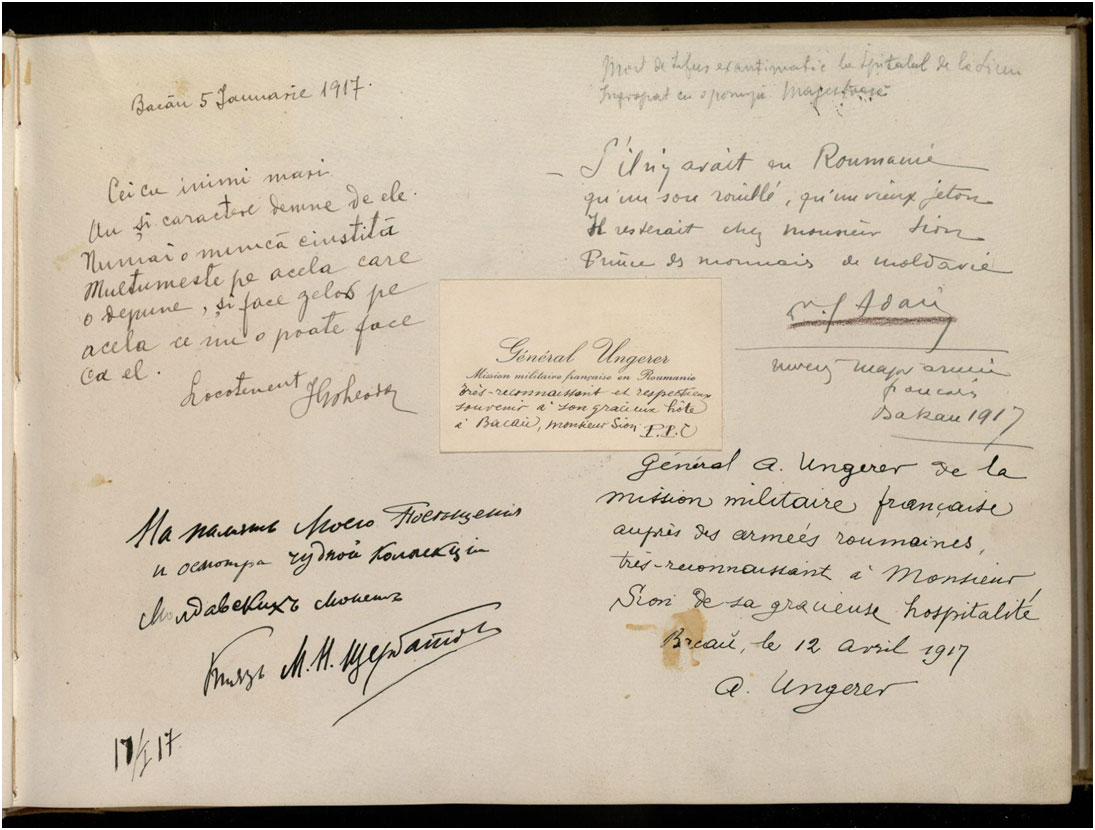 Bacău 5 Ianuarie 1917.
Cei cu inimi mari
Au și caractere demne de ele.
Numai o muncă cinstită
Multumeste pe acela care
o depune, și face gelos pe
acela ce nu o poate face
Ca el.
Locotenent
На память Моего Посѣщенія
и осмотра чудной коллекціи
Молдавскихъ монетъ
Князь М. Н. Щербатов
17/I 17.
Mort de tifus exantematic la Spitalul de la Liceu
Ingropat cu o pompă
S'il n'y avait en Roumanie
qu'un sou rouillé, qu'un vieux jeton
Il resterait chez monsieur Sion
Prince des monnais de moldavie
major armée
français
Bakau 1917
Général Ungerer
Mission militaire française en Roumanie
très-reconnaissant et respectueux
souvenir à son gracieux hôte
à Bacău, monsieur Sion P.P.C
Général A. Ungerer de la
mission militaire française
auprès des armées roumaines,
très-reconnaissant à Monsieur
Sion de sa gracieuse hospitalité
Bacău, le 12 avril 1917
A. Ungerer